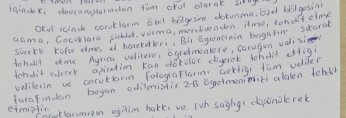 içindeki davranışlarından tüm okul olarak
Okul içinde çocukların özel bölgesine dokunma, özel bölgesini
açma, Çocuklara şiddet, vurma, merdivenden itme, tehdit etme
Sürekli küfür etme, el hareketleri, Bir öğrencinin boğazını sıkarak
tehdit etme Ayrıca velilere, öğretmenlere, çocuğun velisi
tehdit ederek apırdım kan dökülür diyerek tehdit ettiği
velilerin ve çocukların fotoğraflarını çektiği tüm veliler
tarafından beyan edilmiştir 2-B öğretmenimizi alaken tehdit
etmiştir.
Çocuklarımızın eğitim hakkı ve ruh sağlığı düşünülerek